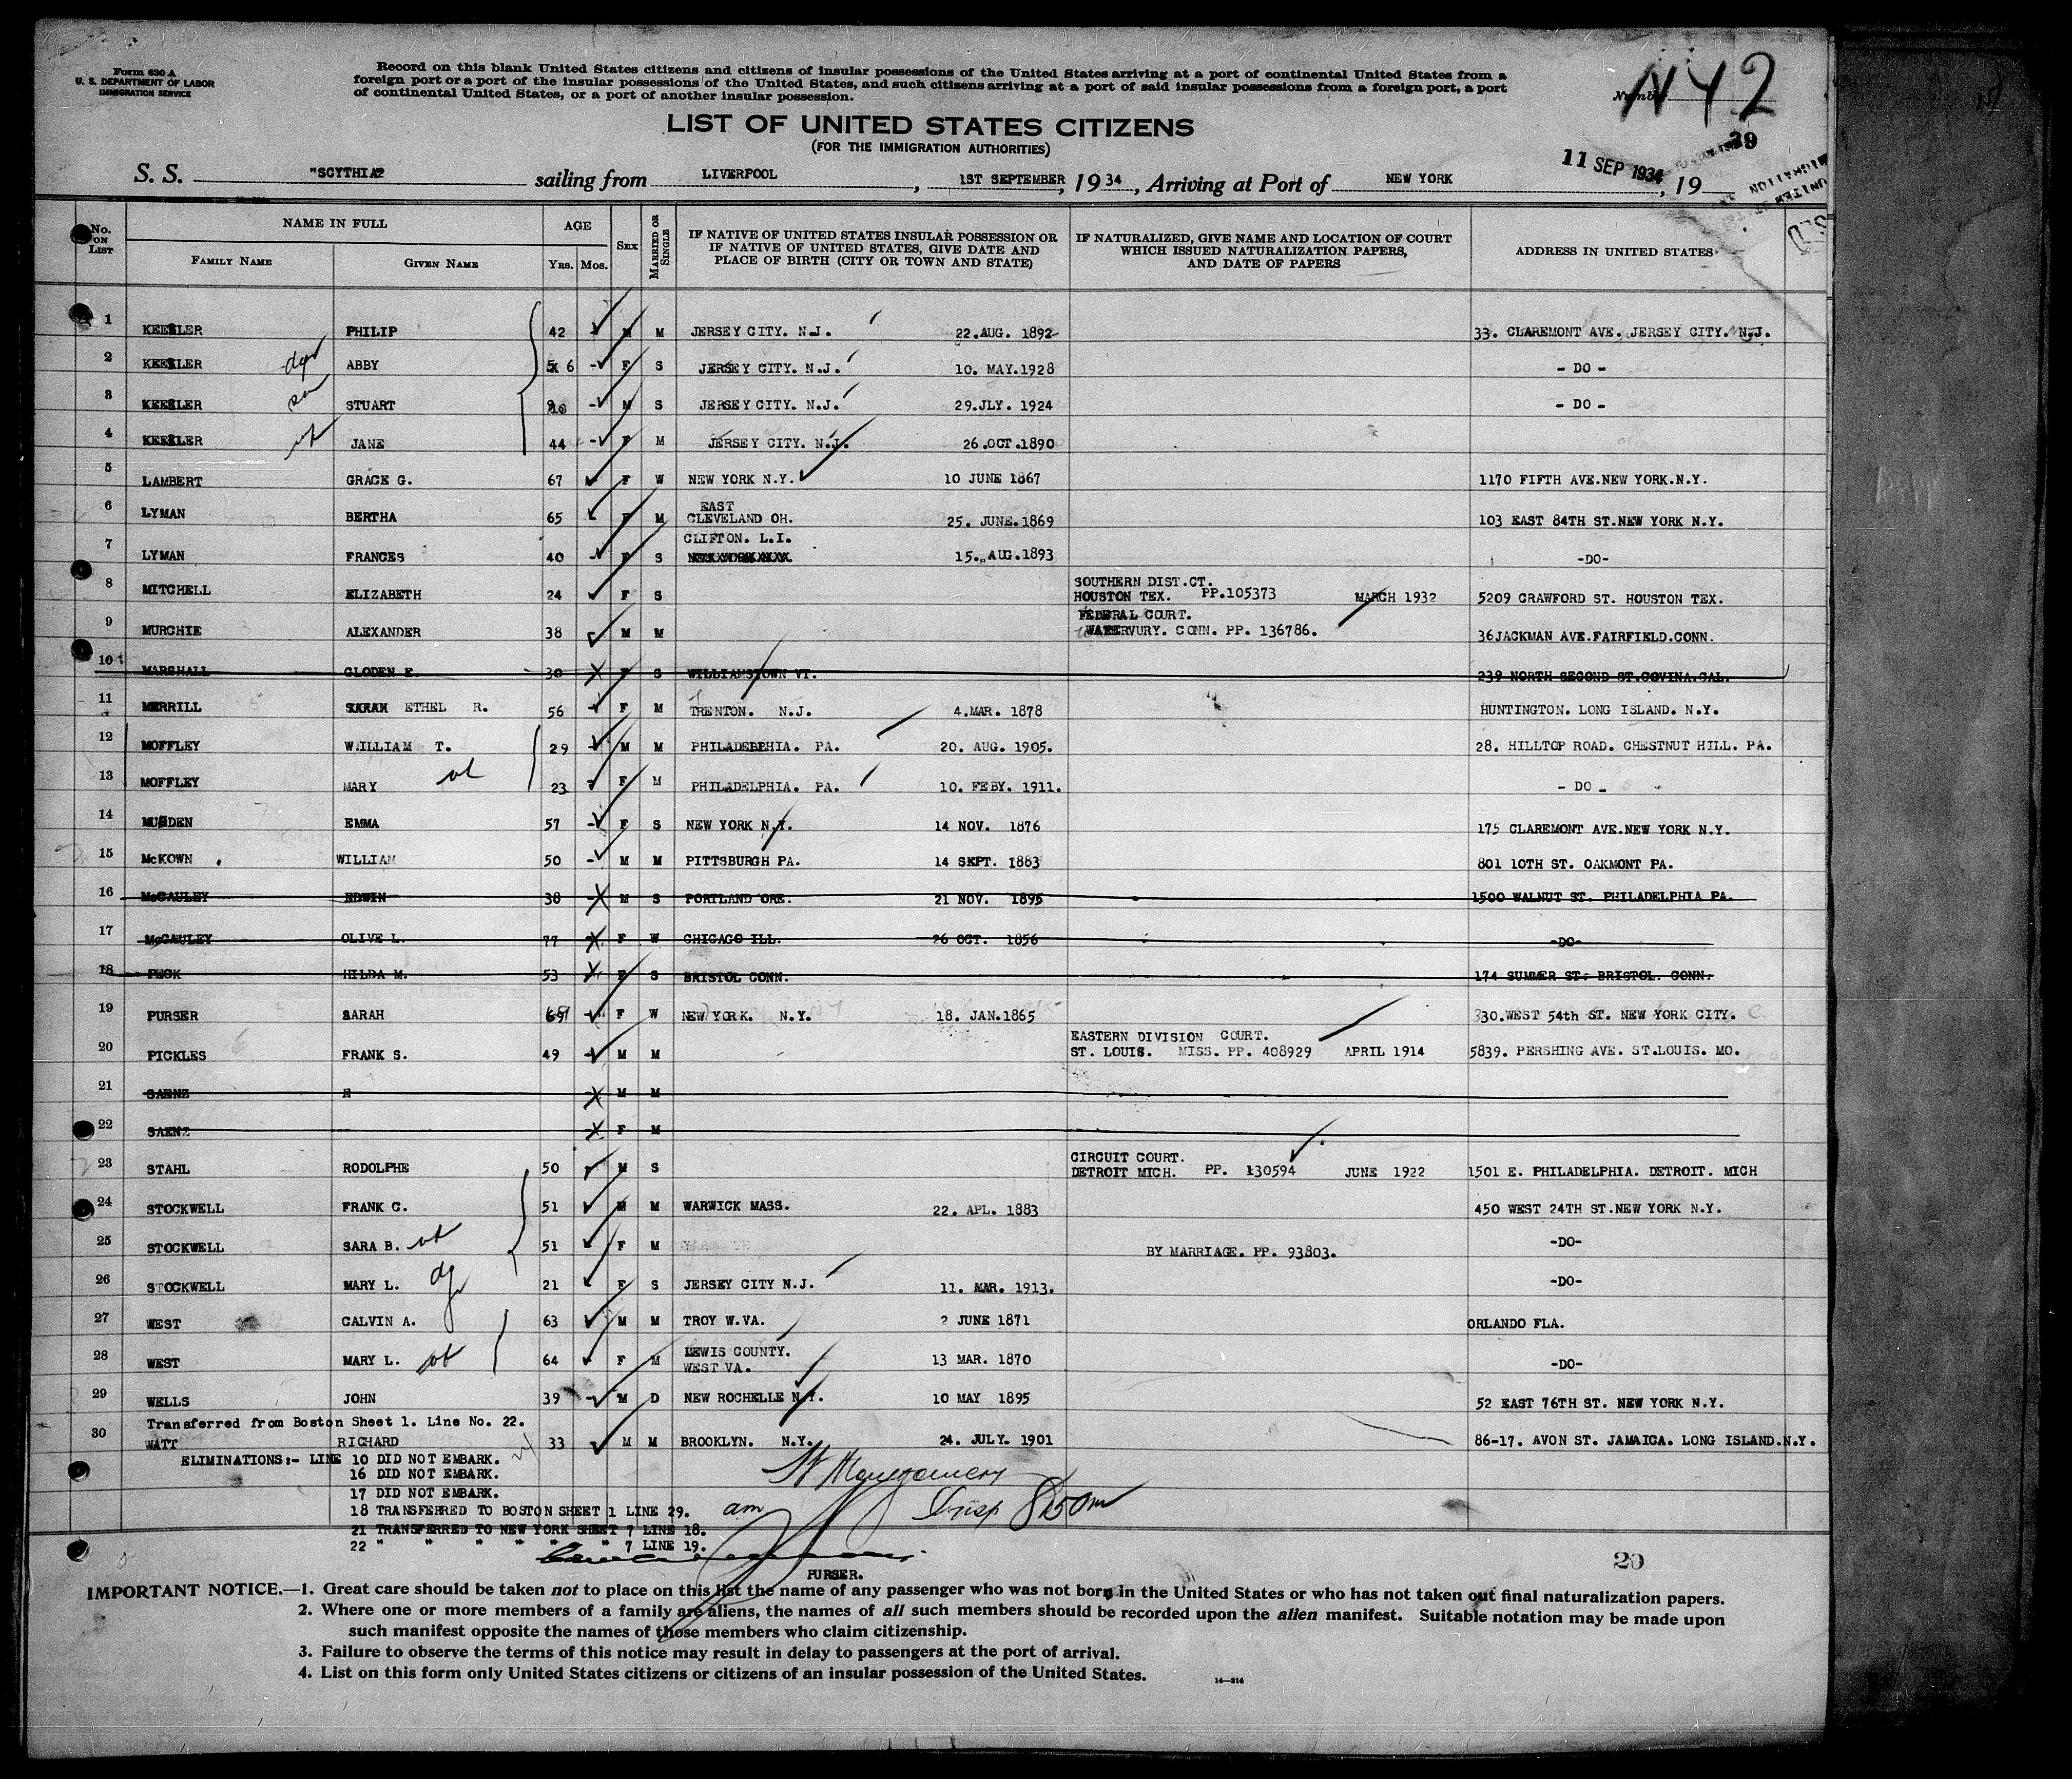 Form 630 A
U. S. DEPARTMENT OF LABOR
IMMIGRATION SERVICE
Record on this blank United States citizens and citizens of insular possessions of the United States arriving at a port of continental United States from a
foreign port or a port of the insular possessions of the United States, and such citizens arriving at a port of said insular possessions from a foreign port, a port
of continental United States, or a port of another insular possession.
Number N Y 2
LIST OF UNITED STATES CITIZENS
(FOR THE IMMIGRATION AUTHORITIES)
39
S. S. "SCYTHIA2 sailing from LIVERPOOL, 1ST SEPTEMBER, 1934, Arriving at Port of NEW YORK 11 SEP 1934, 19
No. ON LIST NAME IN FULL FAMILY NAME GIVEN NAME AGE YRS. MOS. SEX MARRIED OR SINGLE IF NATIVE OF UNITED STATES INSULAR POSSESSION OR IF NATIVE OF UNITED STATES, GIVE DATE AND PLACE OF BIRTH (CITY OR TOWN AND STATE) IF NATURALIZED, GIVE NAME AND LOCATION OF COURT WHICH ISSUED NATURALIZATION PAPERS, AND DATE OF PAPERS ADDRESS IN UNITED STATES
1 KEESLER PHILIP 42 M M JERSEY CITY. N.J. 22.AUG. 1892 33. CLAREMONT AVE. JERSEY CITY. N.J.
2 KEESLER ABBY 6 - F S JERSEY CITY. N.J. 10. MAY.1928 - DO -
3 KEESLER STUART 10 - M S JERSEY CITY. N.J. 29.JLY. 1924 - DO -
4 KEESLER JANE 44 - F M JERSEY CITY. N.J. 26.OCT.1890
5 LAMBERT GRACE G. 67 F W NEW YORK N.Y. 10 JUNE 1867 1170 FIFTH AVE.NEW YORK.N.Y.
6 LYMAN BERTHA 65 F M EAST CLEVELAND OH. 25. JUNE.1869 103 EAST 84TH ST.NEW YORK N.Y.
7 LYMAN FRANCES 40 - F S CLIFTON. L.I. 15. AUG.1893 -DO-
8 MITCHELL ELIZABETH 24 F S SOUTHERN DIST.CT. HOUSTON TEX. PP.105373 MARCH 1932 5209 CRAWFORD ST. HOUSTON TEX.
9 MURCHIE ALEXANDER 38 M M FEDERAL COURT. WATERVURY. CONN. PP. 136786. 36JACKMAN AVE.FAIRFIELD.CONN.
10 MARSHALL GLODEN E. 30 F S WILLIAMSTOWN VT. 239 NORTH SECOND ST.COVINA.CAL.
11 MERRILL ETHEL R. 56 - F M TRENTON. N.J. 4.MAR. 1878 HUNTINGTON. LONG ISLAND. N.Y.
12 MOFFLEY WILLIAM T. 29 M M PHILADELPHIA. PA. 20. AUG. 1905. 28. HILLTOP ROAD. CHESTNUT HILL. PA.
13 MOFFLEY MARY 23 F M PHILADELPHIA. PA. 10. FEBY. 1911. - DO -
14 MUSDEN EMMA 57 - F S NEW YORK N.Y. 14 NOV. 1876 175 CLAREMONT AVE.NEW YORK N.Y.
15 McKOWN WILLIAM 50 - M M PITTSBURGH PA. 14 SEPT. 1883 801 10TH ST. OAKMONT PA.
16 McCAULEY EDWIN 38 M S PORTLAND ORE. 21 NOV. 1895 1500 WALNUT ST. PHILADELPHIA PA.
17 McCAULEY OLIVE L. 77 F W CHICAGO ILL. 26 OCT. 1856 -DO-
18 PECK HILDA M. 53 F S BRISTOL CONN. 174 SUMMER ST. BRISTOL. CONN.
19 PURSER SARAH F W NEW YORK. N.Y. 18. JAN.1865 330.WEST 54th ST. NEW YORK CITY.
20 PICKLES FRANK S. 49 M M EASTERN DIVISION COURT. ST. LOUIS. MISS. PP. 408929 APRIL 1914 5839. PERSHING AVE. ST.LOUIS. MO.
21 SAENZ E M M
22 SAENZ F M
23 STAHL RODOLPHE 50 M S CIRCUIT COURT. DETROIT MICH. PP. 130594 JUNE 1922 1501 E. PHILADELPHIA. DETROIT. MICH
24 STOCKWELL FRANK C. 51 M M WARWICK MASS. 22. APL. 1883 450 WEST 24TH ST.NEW YORK N.Y.
25 STOCKWELL SARA B. 51 F M BY MARRIAGE. PP. 93803. -DO-
26 STOCKWELL MARY L. 21 F S JERSEY CITY N.J. 11. MAR. 1913. -DO-
27 WEST CALVIN A. 63 M M TROY W.VA. 2 JUNE 1871 ORLANDO FLA.
28 WEST MARY L. 64 F M LEWIS COUNTY. WEST VA. 13 MAR. 1870 -DO-
29 WELLS JOHN 39 - M D NEW ROCHELLE N.Y. 10 MAY 1895 52 EAST 76TH ST. NEW YORK N.Y.
Transferred from Boston Sheet 1. Line No. 22.
30 WATT RICHARD 33 M M BROOKLYN. N.Y. 24. JULY. 1901 86-17. AVON ST. JAMAICA. LONG ISLAND.N.Y.
ELIMINATIONS:- LINE 10 DID NOT EMBARK.
16 DID NOT EMBARK.
17 DID NOT EMBARK.
18 TRANSFERRED TO BOSTON SHEET 1 LINE 29.
21 TRANSFERRED TO NEW YORK SHEET 7 LINE 18.
22 " " " " " " 7 LINE 19.
Montgomery
Insp 850m
am
PURSER.
20
IMPORTANT NOTICE.—1. Great care should be taken not to place on this list the name of any passenger who was not born in the United States or who has not taken out final naturalization papers.
2. Where one or more members of a family are aliens, the names of all such members should be recorded upon the alien manifest. Suitable notation may be made upon
such manifest opposite the names of those members who claim citizenship.
3. Failure to observe the terms of this notice may result in delay to passengers at the port of arrival.
4. List on this form only United States citizens or citizens of an insular possession of the United States.
14—214